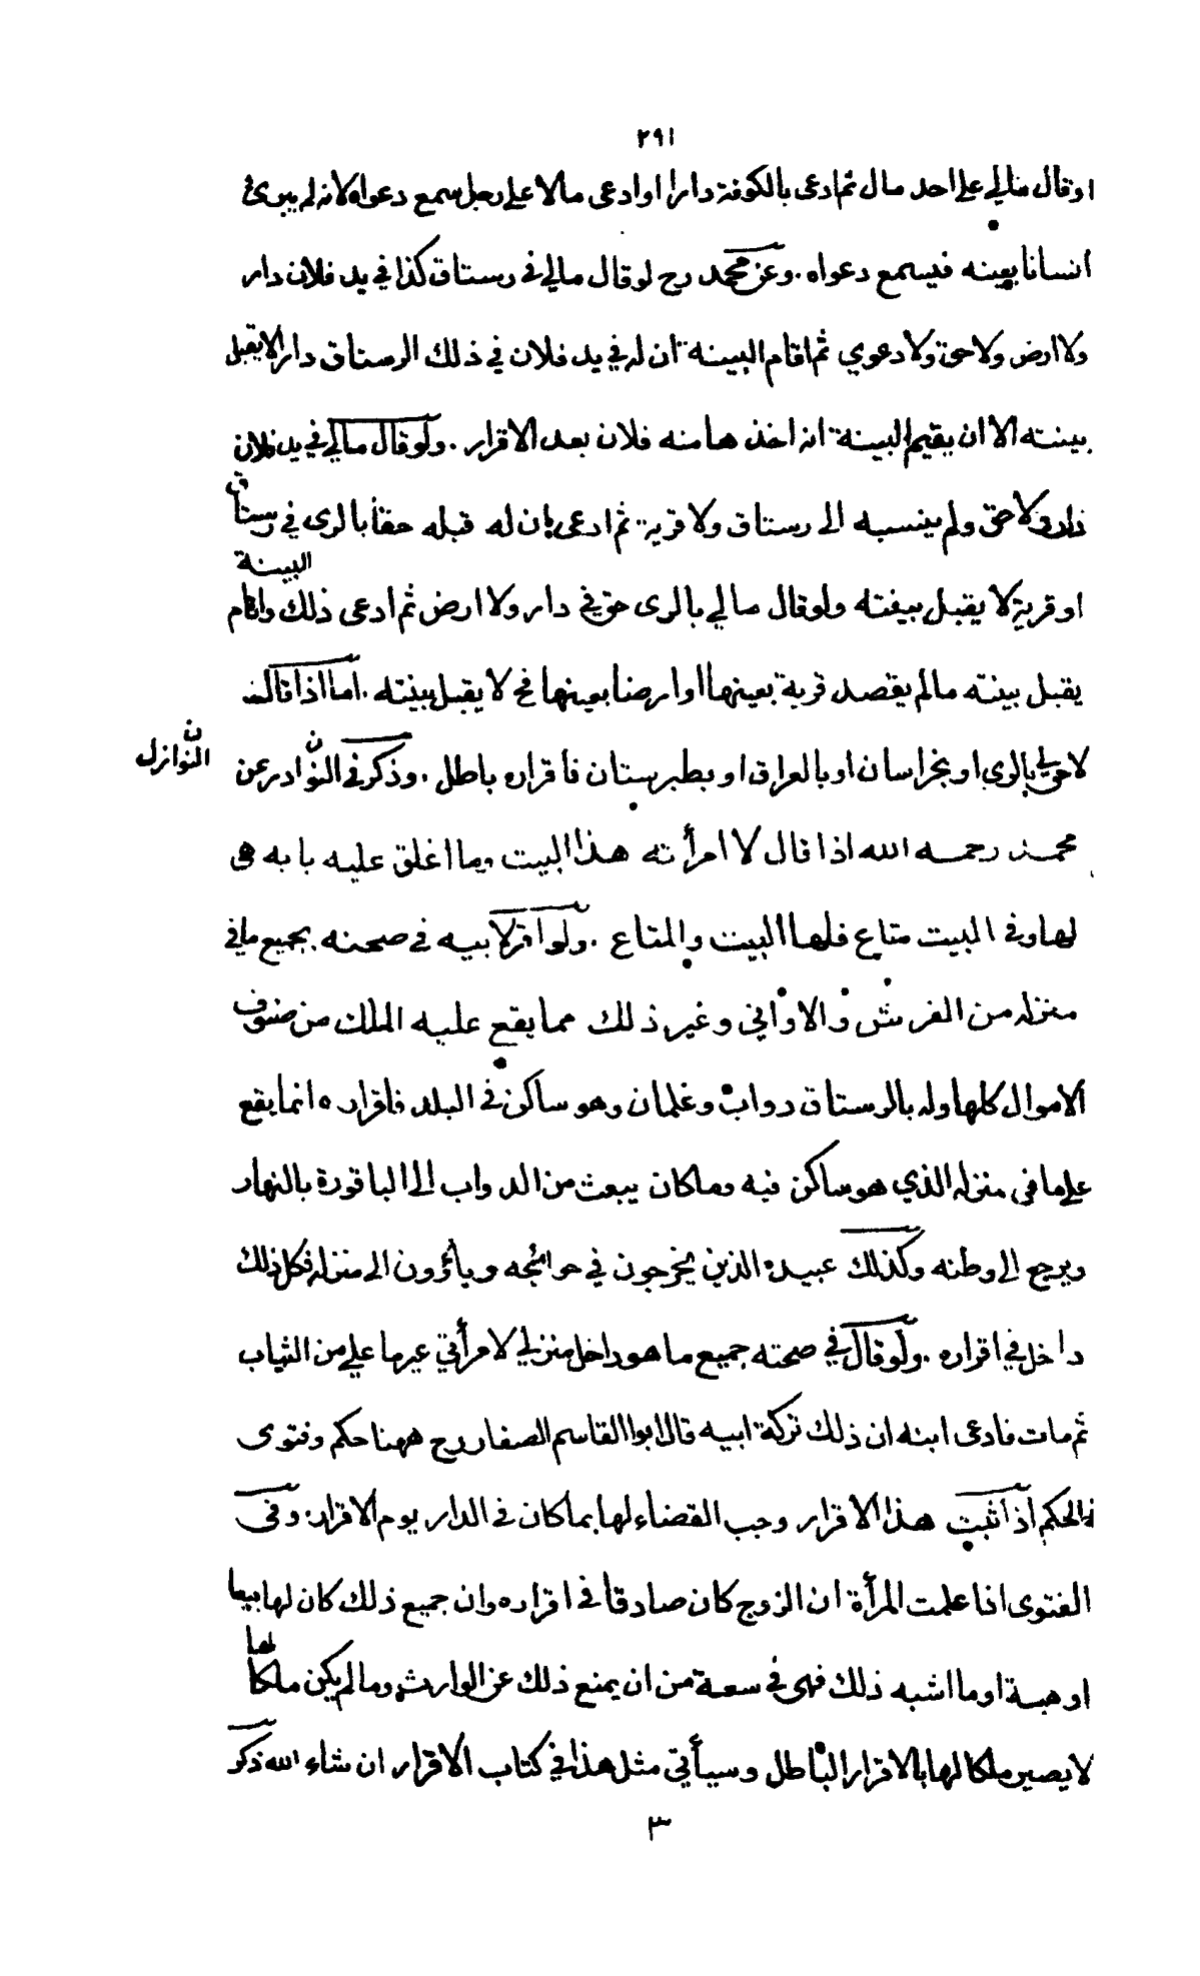 ٢٩١
او قال مالي على احد مال ثم ادعى بالكوفة دارا او ادعى مالا على رجل سمع دعواه لانه لم يبرئ
انسانا بعينه فيسمع دعواه . وعن محمد رح لو قال مالي في رستاق كذا في يد فلان دار
ولا ارض ولا حق ولا دعوي ثم اقام البينة ان له في يد فلان في ذلك الرستاق دارا لا يقبل
بينته الا ان يقيم البينة انه اخذ ها منه فلان بعد الاقرار . ولو قال مالي في يد فلان
دار ولا حق ولم ينسبه الى رستاق ولا قرية ثم ادعى بان له قبله حقا بالرى في رستاق
او قرية لا يقبل بينته ولو قال مالي بالرى حق في دار ولا ارض ثم ادعى ذلك واقام البينة
يقبل بينته مالم يقصد قرية بعينها او ارضا بعينها فح لا يقبل بينته . اما اذا قال
لا حق لي بالري او بخراسان او بالعراق او بطبرستان فاقراره باطل . وذكر في النوادر عن
النوازل ن
محمد رحمه الله اذا قال لا امرأته هذا البيت وما اغلق عليه بابه هى
لها وفي البيت متاع فلها البيت والمتاع . ولو اقر لابيه في صحته بجميع مافي
منزله من الفرش والاواني وغير ذلك مما يقع عليه الملك من صنوف
الاموال كلها وله بالرستاق دواب وغلمان وهو ساكن في البلد فاقراره انما يقع
على ما فى منزله الذي هو ساكن فيه وما كان يبعث من الدواب الى الباقورة بالنهار
ويرجع الى وطنه وكذلك عبيده الذين يخرجون في حوائجه ويأؤون الى منزله فكل ذلك
داخل في اقراره . ولو قال في صحته جميع ما هو داخل منزلي لامرأتي غير ما علي من الثياب
ثم مات فادعى ابنه ان ذلك تركة ابيه قال ابوا القاسم الصفار رح ههنا حكم وفتوى
فالحكم اذا ثبت هذا الاقرار وجب القضاء لها بما كان في الدار يوم الاقرار . وفى
الفتوى اذا علمت المرأة ان الزوج كان صادقا في اقراره وان جميع ذلك كان لها بيعا
او هبة او ما اشبه ذلك فهى في سعة من ان يمنع ذلك عن الوارث وما لم يكن ملكا لها
لا يصير ملكا لها بالاقرار الباطل وسيأتي مثل هذا في كتاب الاقرار ان شاء الله ذكر
٣